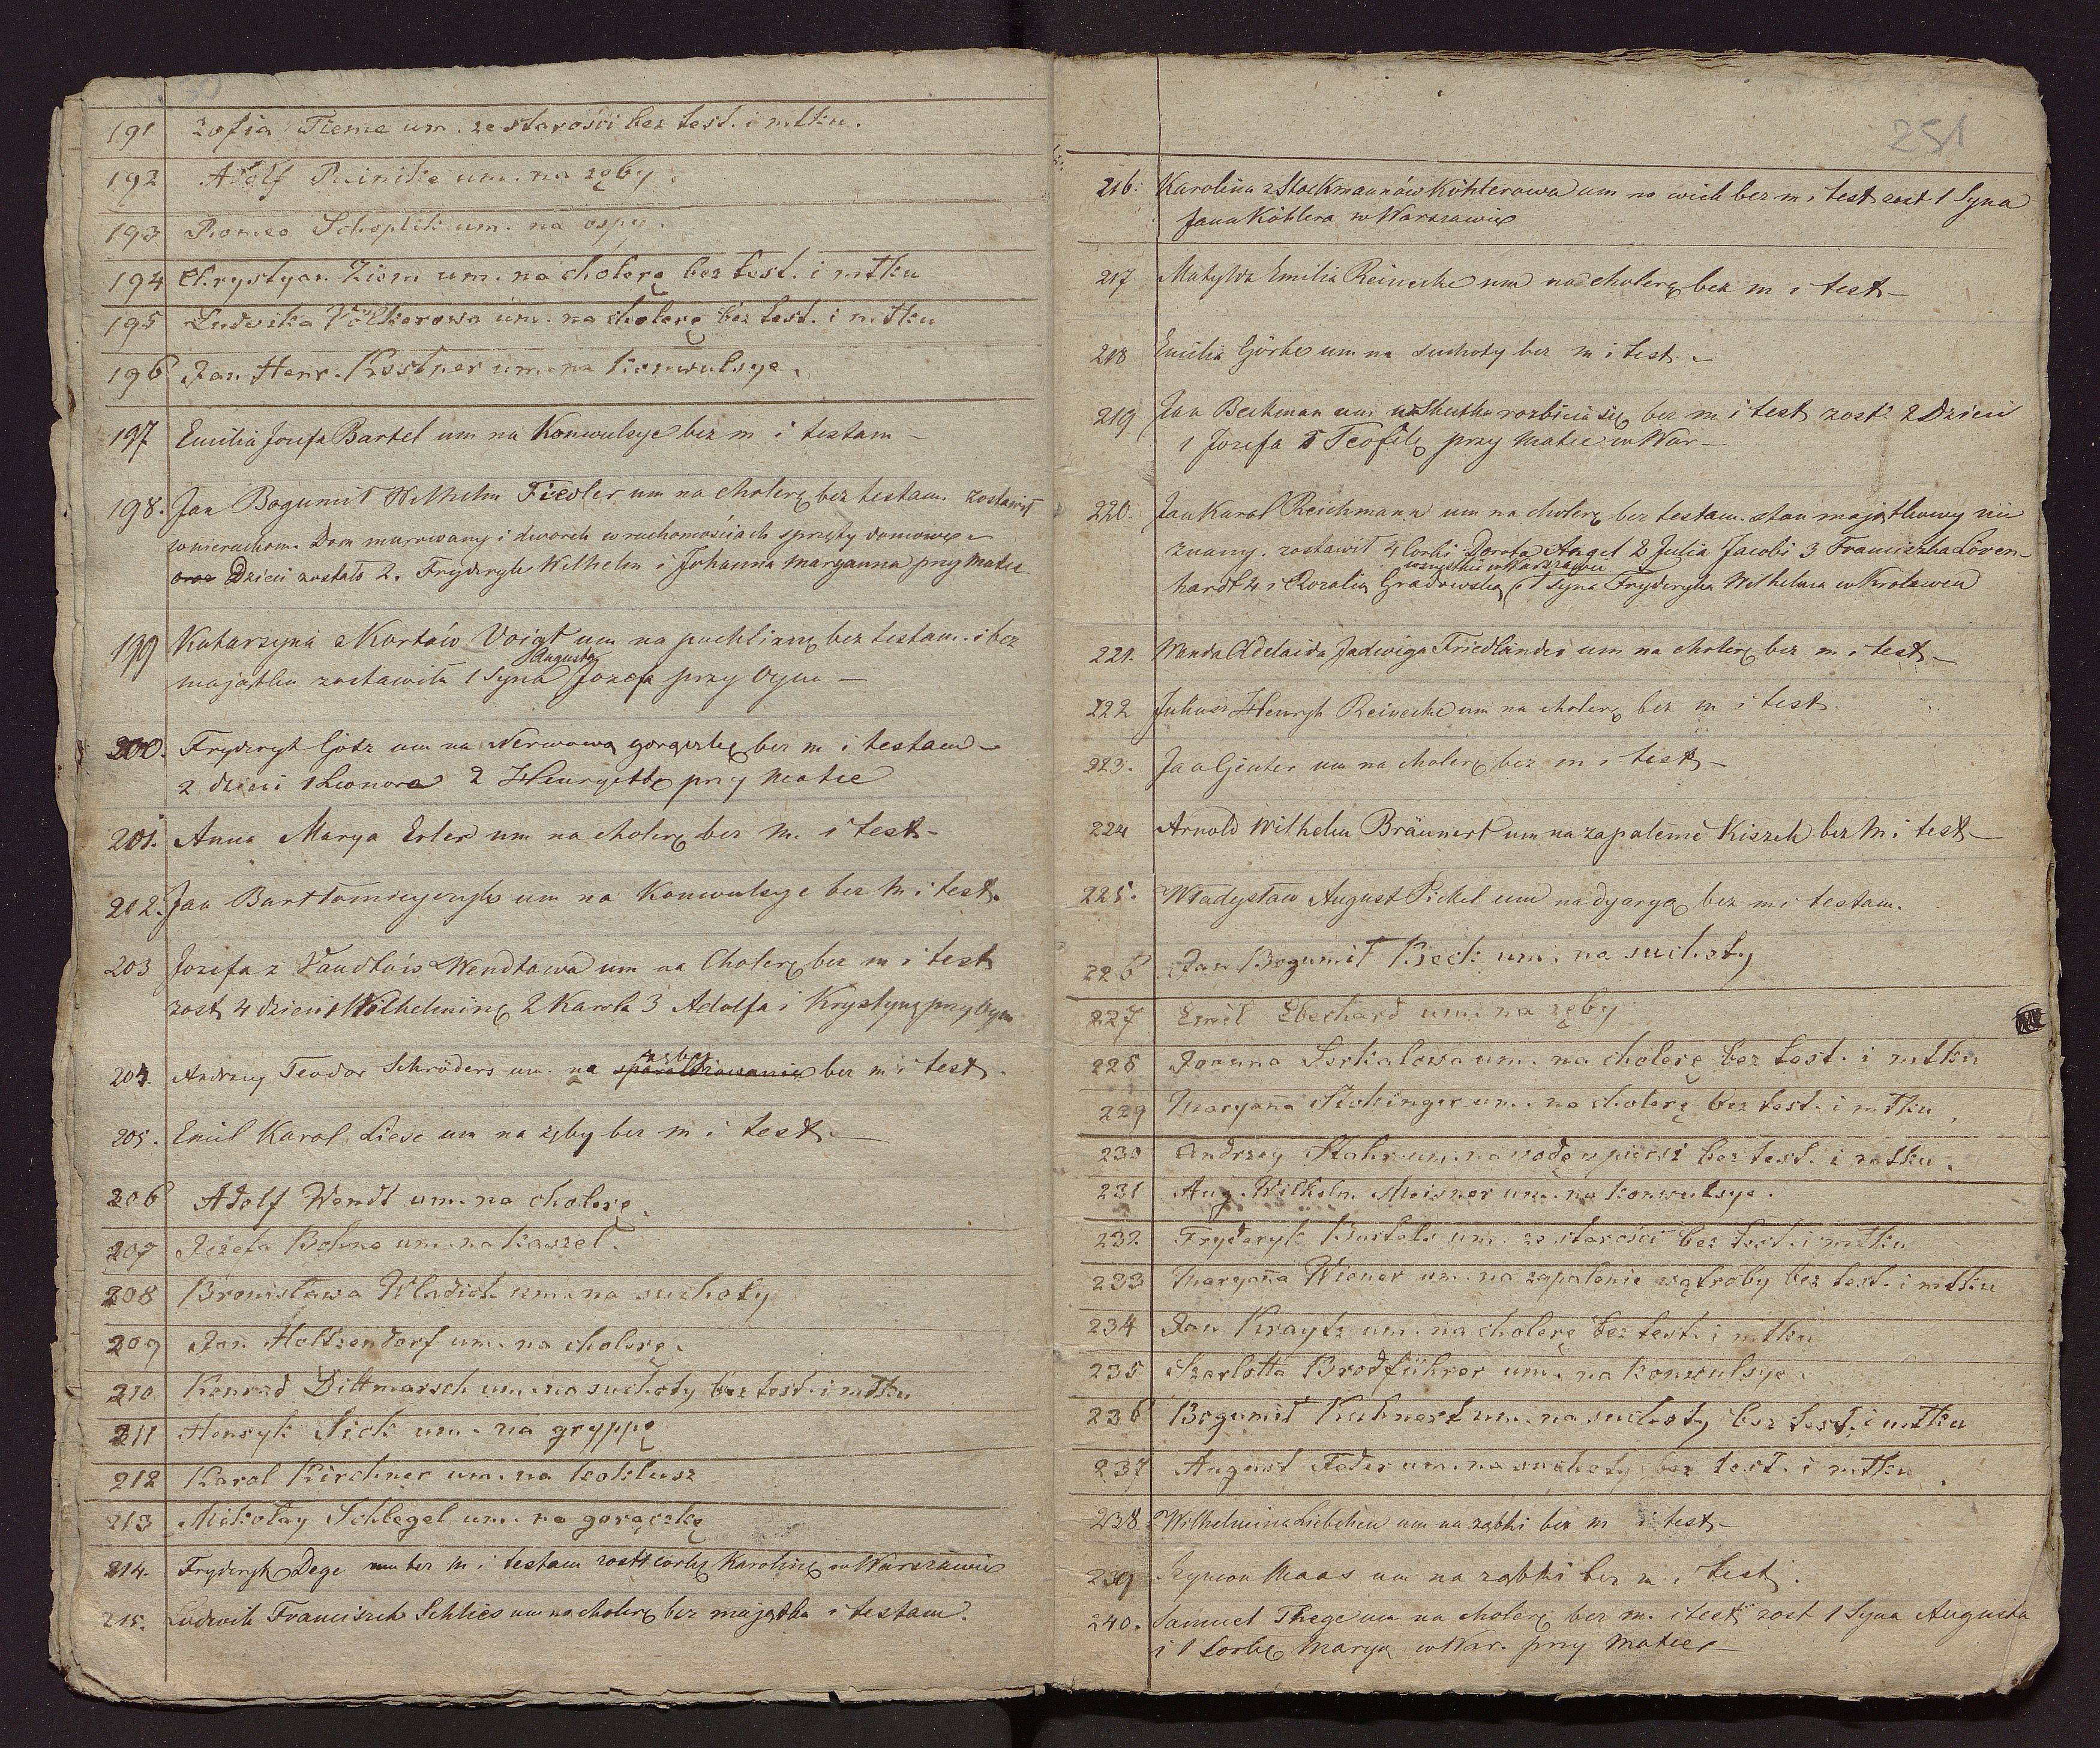 191 Zofia Tieme um. ze starości bez test. i mtku.
192 Adolf Reinike um. na zęby.
193 Romeo Schoplik um. na ospy.
194 Chrystyan Ziem um. na cholerę bez test. i mtku
195 Ludwika Völkerowa um. na cholerę bez test. i mtku
196 Jan Henr. Kostner um. na konwulsye.
197 Emilia Jozefa Bartel um na Konwulsye bez m i testam –
198. Jan Bogumił Wilhelm Fiedler um na cholerę bez testam. zostawił
w nieruchom. Dom murowany i dworek w ruchomościach sprzęty domowe –
oraz Dzieci zostało 2. Fryderyk Wilhelm i Johanna Maryanna przy Matce
199 Katarzyna z Kortów Voigt um na puchlinę bez testam. i bez
majątku zostawiła 1 Syna Augusta Jozefa przy Oycu –
200. Fryderyk Götz um na Nerwową gorączkę bez m i testam –
2 dzieci 1 Leonora 2 Henryettę przy Matce
201. Anna Marya Erler um na cholerę bez m. i test –
202. Jan Bartłomieyczyk um na Konwulsye bez m i test.
203 Jozefa z Vaudtów Wendtowa um na Cholerę bez m i test
zost. 4 dzieci 1 Wilhelminę 2 Karola 3 Adolfa i Krystynę przy Oycu
204. Andrzey Teodor Schröders um. na zęby sparaliżowanie bez m i test.
205. Emil Karol Liese um na zęby bez m i test. –
206 Adolf Wendt um. na cholerę.
207 Jozefa Bohne um. na kaszel.
208 Bronisława Wladich um. na suchoty
209 Jan Holtzendorf um. na cholerę.
210 Konrad Dittmarsch um. na suchoty bez test. i mtku
211 Henryk Sick um. na gryppę
212 Karol Kirchner um. na koklusz
213 Mikołay Schlegel um. na gorączkę
214. Fryderyk Dege um bez m i testam zost 1 corkę Karolinę w Warszawie
215. Ludwik Franciszek Schlies um na cholerę bez majątku i testam.
251
216. Karolina z Stockmannów Köhlerowa um na wiek bez m i test zost 1 Syna
Jana Köhlera w Warszawie
217 Matylda Emilia Reinecke um na cholerę bez m i test –
218 Emilia Görke um na suchoty bez m i test –
219 Jan Beckman um na skutku rozbicia się bez m i test zost. 2 Dzieci
1 Jozefa i Teofilę przy Matce w War –
220. Jan Karol Reichmann um na cholerę bez testam. stan majątkowy nie
znany. zostawił 4 Corki Dorota Angel 2 Julia Jacobi 3 Franciszka Löven-
hardt 4 i Rozalią Gradowską wszystkie w Warszawie i 1 Syna Fryderyka Wilhelma w Krolewcu
221. Wanda Adelaida Jadwiga Friedländer um na cholerę bez m i test –
222 Juliusz Henryk Reinecke um na cholerę bez m i test
223. Jan Ginter um na cholerę bez m i test –
224 Arnold Wilhelm Bräunert um na zapalenie Kiszek bez m i test –
225. Władysław August Pickel um na dyaryą bez m i testam.
226 Jan Bogumił Beck um. na suchoty
227 Emil Eberhard um. na zęby
228 Joanna Serkalowa um. na cholerę bez test. i mtku
229 Maryanna Sickinger um. na cholerę bez test. i mtku.
230 Andrzey Stahr um. na wodę w piersi bez test. i mtku.
231 Aug. Wilhelm. Meisner um. na konwulsye.
232. Fryderyk Bartels um. ze starości bez test. i mtku
233 Maryanna Wiener um. na zapalenie wątroby bez test. i mtku
234 Jan Kraytz um. na cholerę bez test. i mtku
235 Szarlotta Brodführer um. na konwulsye.
236 Bogumił Kuhnert um. na suchoty bez test. i mtku
237 August Feder um. na suchoty bez test. i mtku.
238. Wilhelmina Liebchen um na ząbki bez m i test –
239 Szymon Maas um na ząbki bez m i test.
240. Samuel Thege um na cholerę bez m. i test zost 1 Syna Augusta
i 1 Corkę Maryą w War. przy Matce –